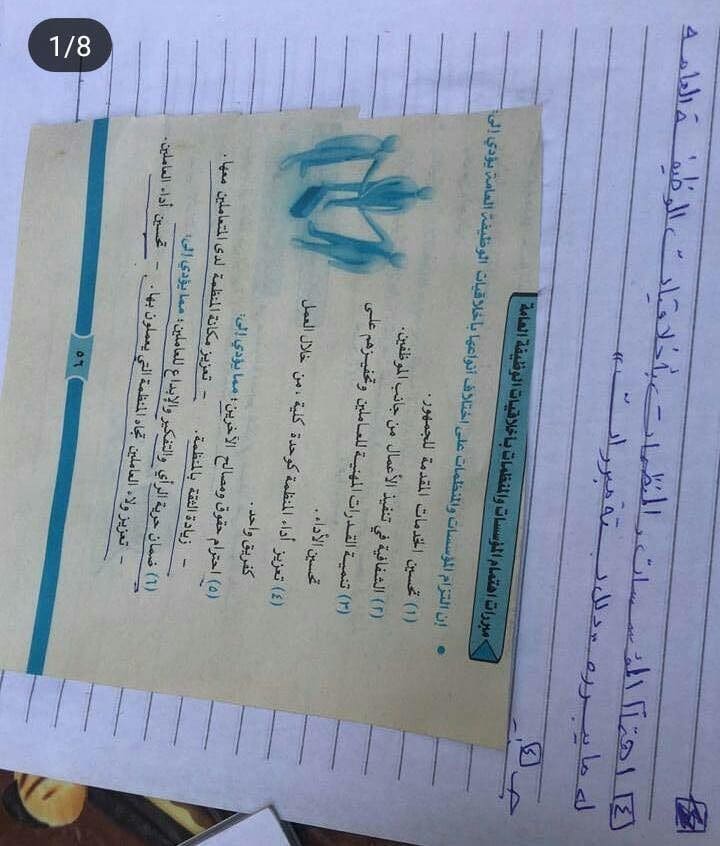 1/8
[٤] اهتمام المؤسسات والمنظمات بأخلاقيات الوظيفة العامة
له ما يبرره دلل بستة مبررات"
جـ [٤] -
مبررات اهتمام المؤسسات والمنظمات بأخلاقيات الوظيفة العامة
• إن التزام المؤسسات والمنظمات على اختلاف أنواعها بأخلاقيات الوظيفة العامة يؤدي إلى:
(١) تحسين الخدمات المقدمة للجمهور.
(٢) الشفافية في تنفيذ الأعمال من جانب الموظفين.
(٣) تنمية القدرات المهنية للعاملين وتحفيزهم على
تحسين الأداء.
(٤) تعزيز أداء المنظمة كوحدة كلية، من خلال العمل
كفريق واحد.
(٥) احترام حقوق ومصالح الآخرين؛ مما يؤدي إلى:
– زيادة الثقة بالمنظمة. – تعزيز مكانة المنظمة لدى المتعاملين معها.
(٦) ضمان حرية الرأي والتفكير والإبداع للعاملين؛ مما يؤدي إلى:
– تعزيز ولاء العاملين تجاه المنظمة التي يعملون بها. – تحسين أداء العاملين.
٥٦